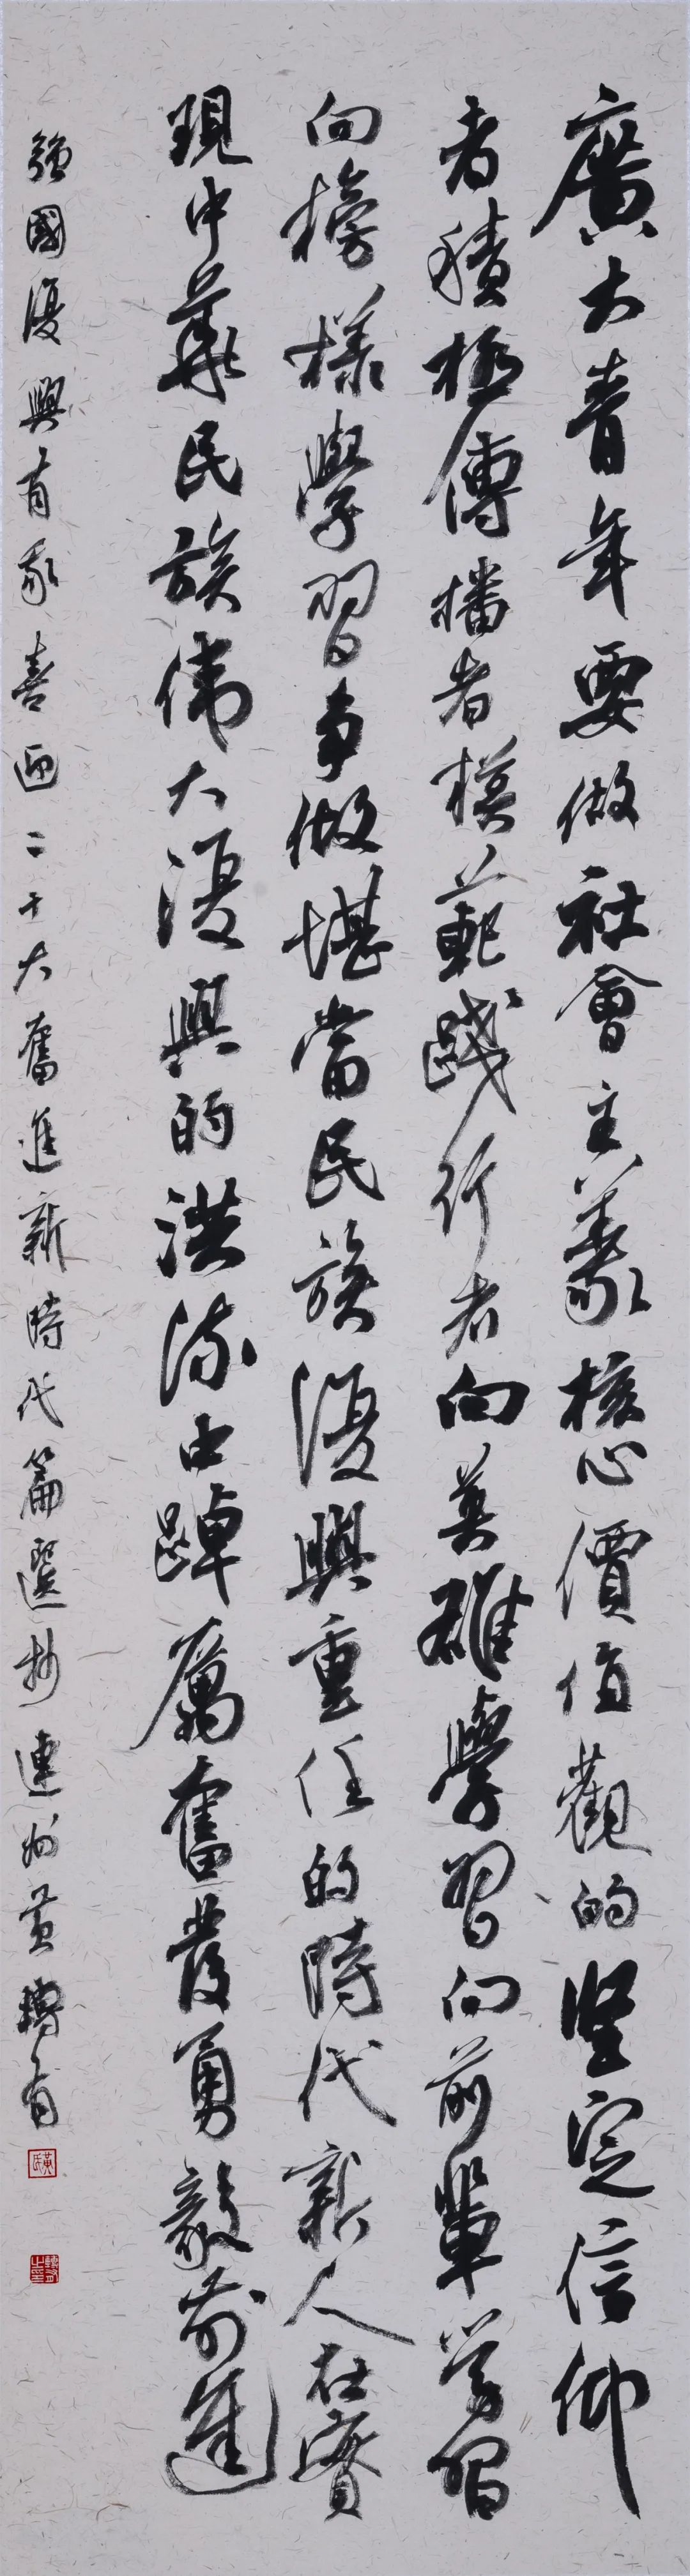 廣大青年要做社會主義核心價值觀的堅定信仰
者積極傳播者模範踐行者向英雄學習向前輩學習
向榜樣學習爭做堪當民族復興重任的時代新人在實
現中華民族偉大復興的洪流中踔厲奮發勇毅前進
強國復興有我喜迎二十大奮進新時代篇選抄連州黃